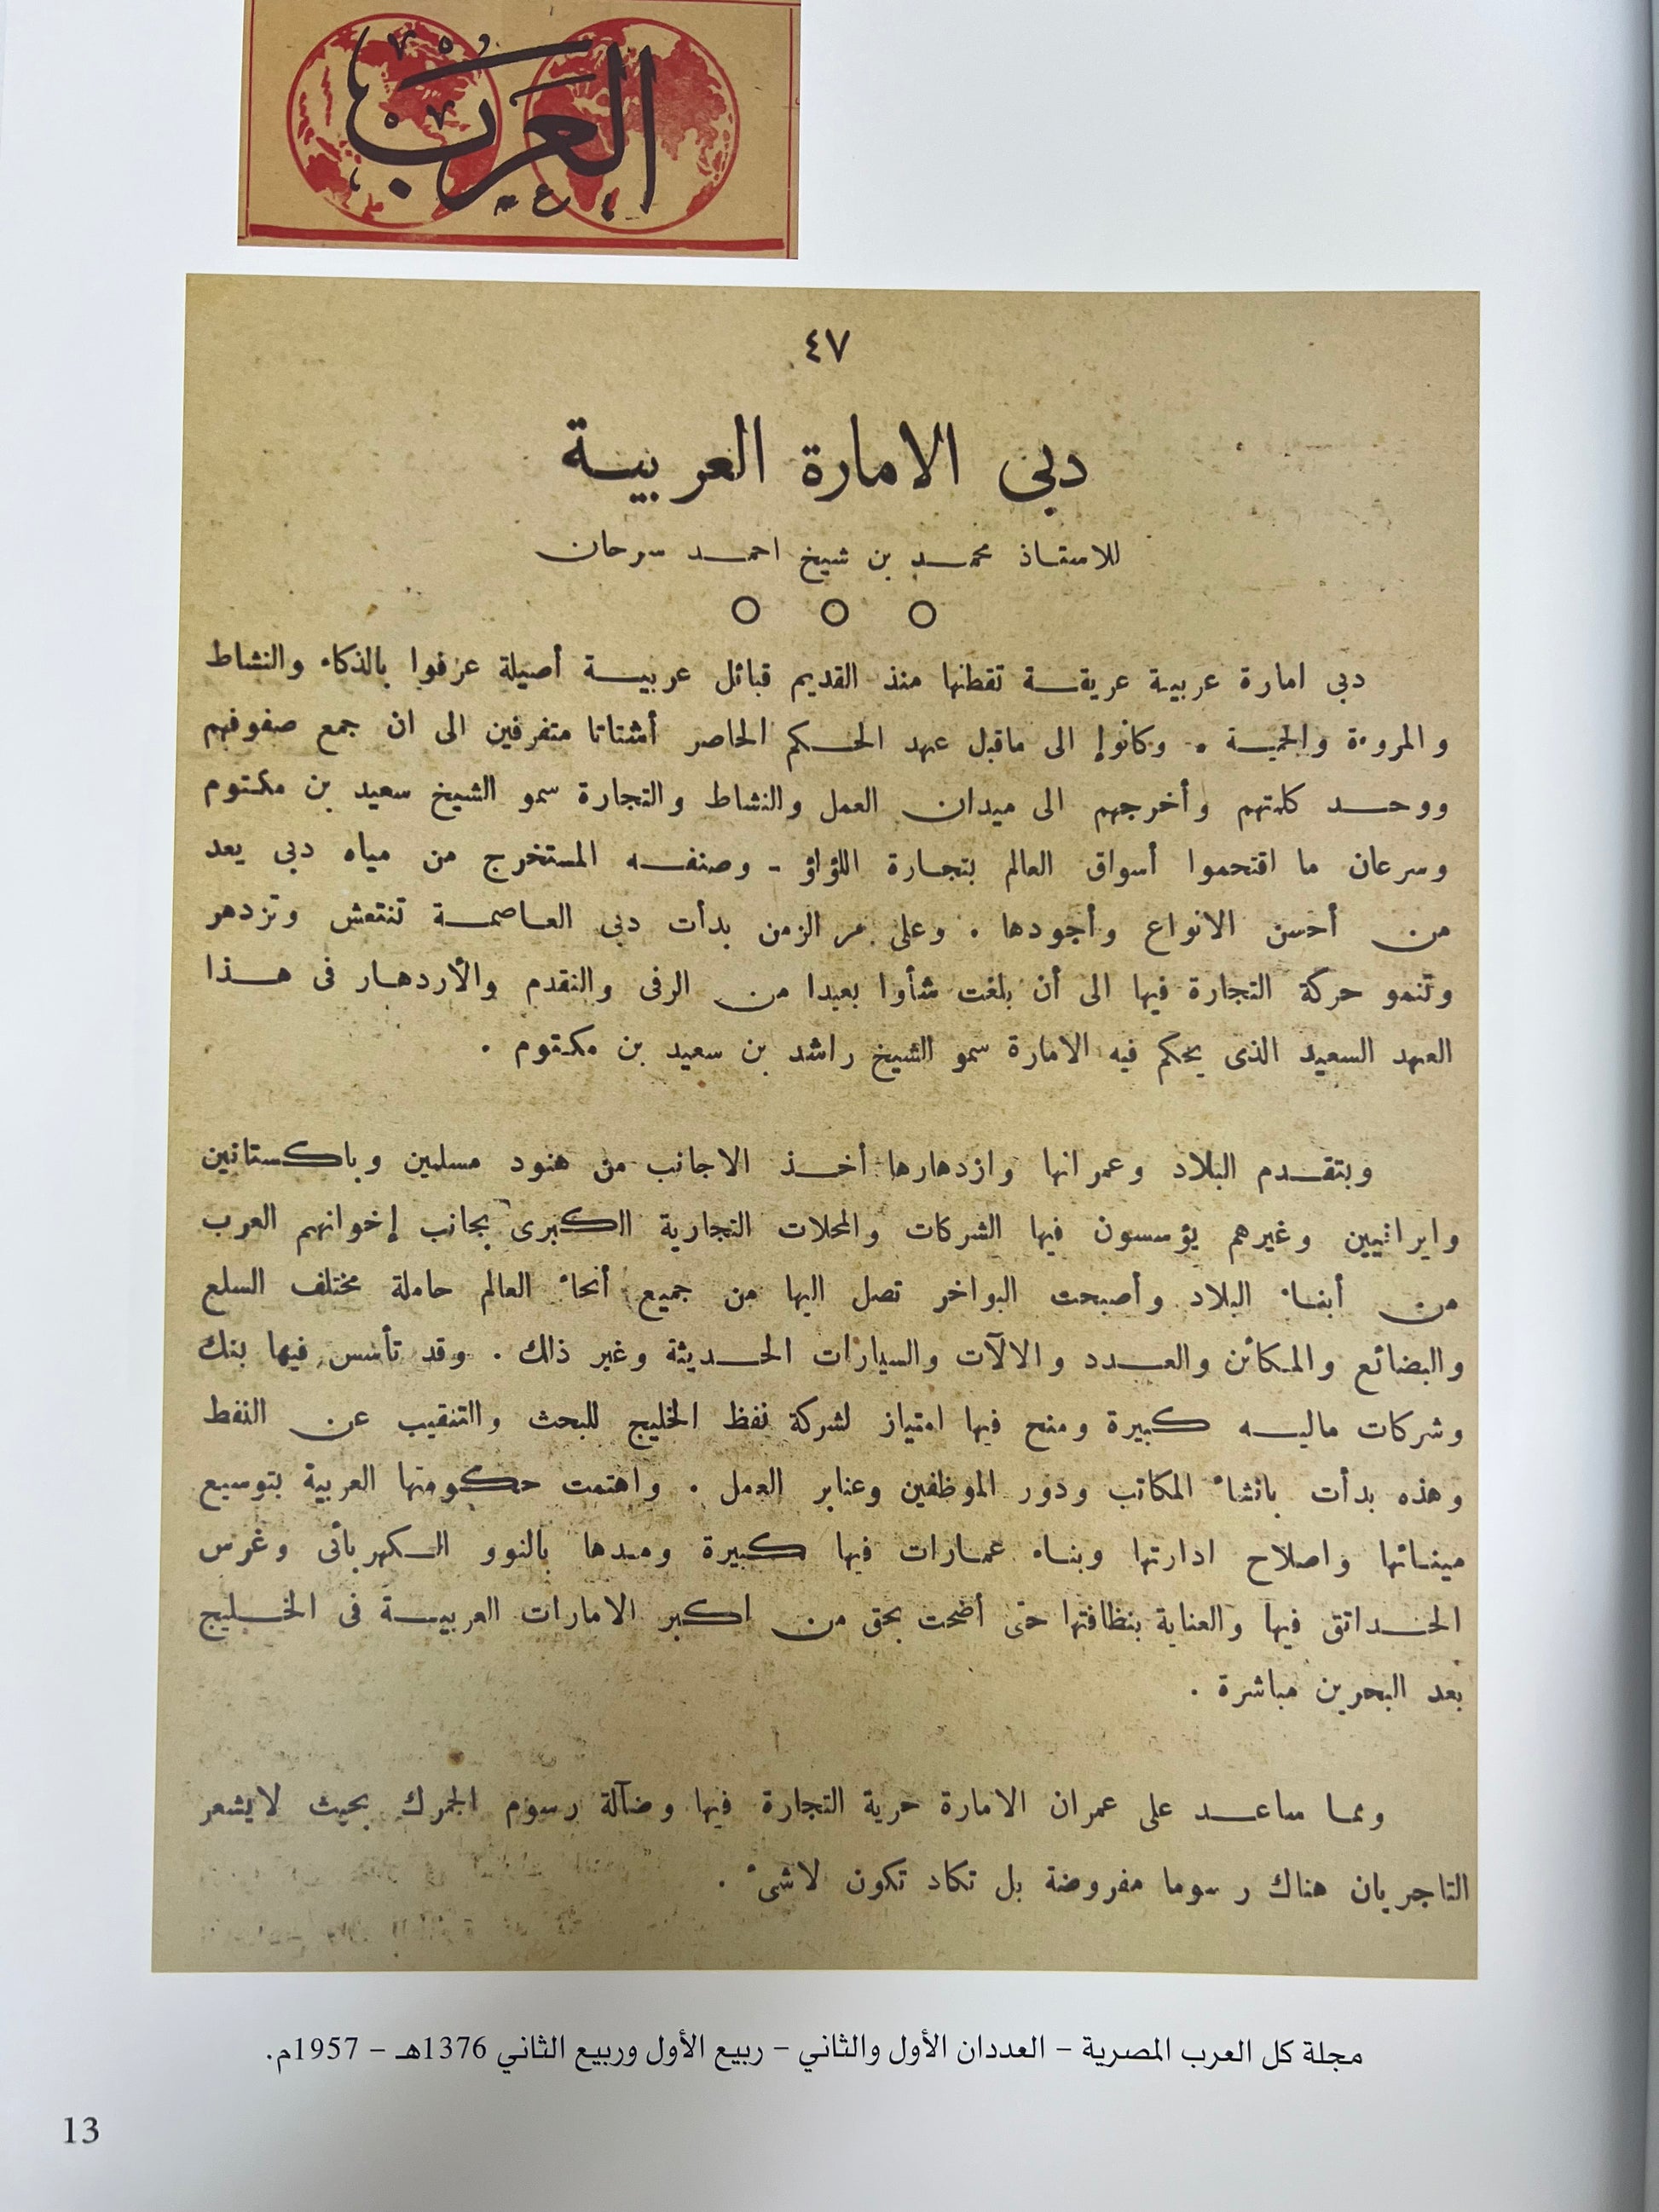 العرب
٤٧
دبى الامارة العربية
للاستاذ محمد بن شيخ احمد سرحان
○ ○ ○
دبى امارة عربية عريقة تقطنها منذ القديم قبائل عربية أصيلة عرفوا بالذكاء والنشاط
والمروءة والحمية . وكانوا الى ماقبل عهد الحكم الحاصر أشتاتا متفرقين الى ان جمع صفوفهم
ووحد كلمتهم وأخرجهم الى ميدان العمل والنشاط والتجارة سمو الشيخ سعيد بن مكتوم
وسرعان ما اقتحموا أسواق العالم بتجارة اللؤلؤ - وصنفه المستخرج من مياه دبى يعد
من أحسن الانواع وأجودها . وعلى مر الزمن بدأت دبى العاصمة تنتعش وتزدهر
وتنمو حركة التجارة فيها الى أن بلغت شأوا بعيدا من الرقى والتقدم والأردهار فى هذا
العهد السعيد الذى يحكم فيه الامارة سمو الشيخ راشد بن سعيد بن مكتوم .
وبتقدم البلاد وعمرانها وازدهارها أخذ الاجانب من هنود مسلمين وباكستانين
وايرانيين وغيرهم يؤسسون فيها الشركات والمحلات التجارية الكبرى بجانب إخوانهم العرب
من أبناء البلاد وأصبحت البواخر تصل اليها من جميع أنحاء العالم حاملة مختلف السلع
والبضائع والمكائن والعدد والالآت والسيارات الحديثة وغير ذلك . وقد تأسس فيها بنك
وشركات ماليه كبيرة ومنح فيها امتياز لشركة نفظ الخليج للبحث والتنقيب عن النفط
وهذه بدأت بانشاء المكاتب ودور الموظفين وعنابر العمل . واهتمت حكومتها العربية بتوسيع
مينائها واصلاح ادارتها وبناء عمارات فيها كبيرة ومدها بالنوو الكهربائى وغرس
الحدائق فيها والعناية بنظافتها حتى أضحت بحق من اكبر الامارات العربية فى الخليج
بعد البحرين مباشرة .
ومما ساعد على عمران الامارة حرية التجارة فيها وضآلة رسوم الجمرك بحيث لايشعر
التاجر بان هناك رسوما مفروضة بل تكاد تكون لاشىء .
مجلة كل العرب المصرية – العددان الأول والثاني – ربيع الأول وربيع الثاني 1376هـ – 1957م.
13